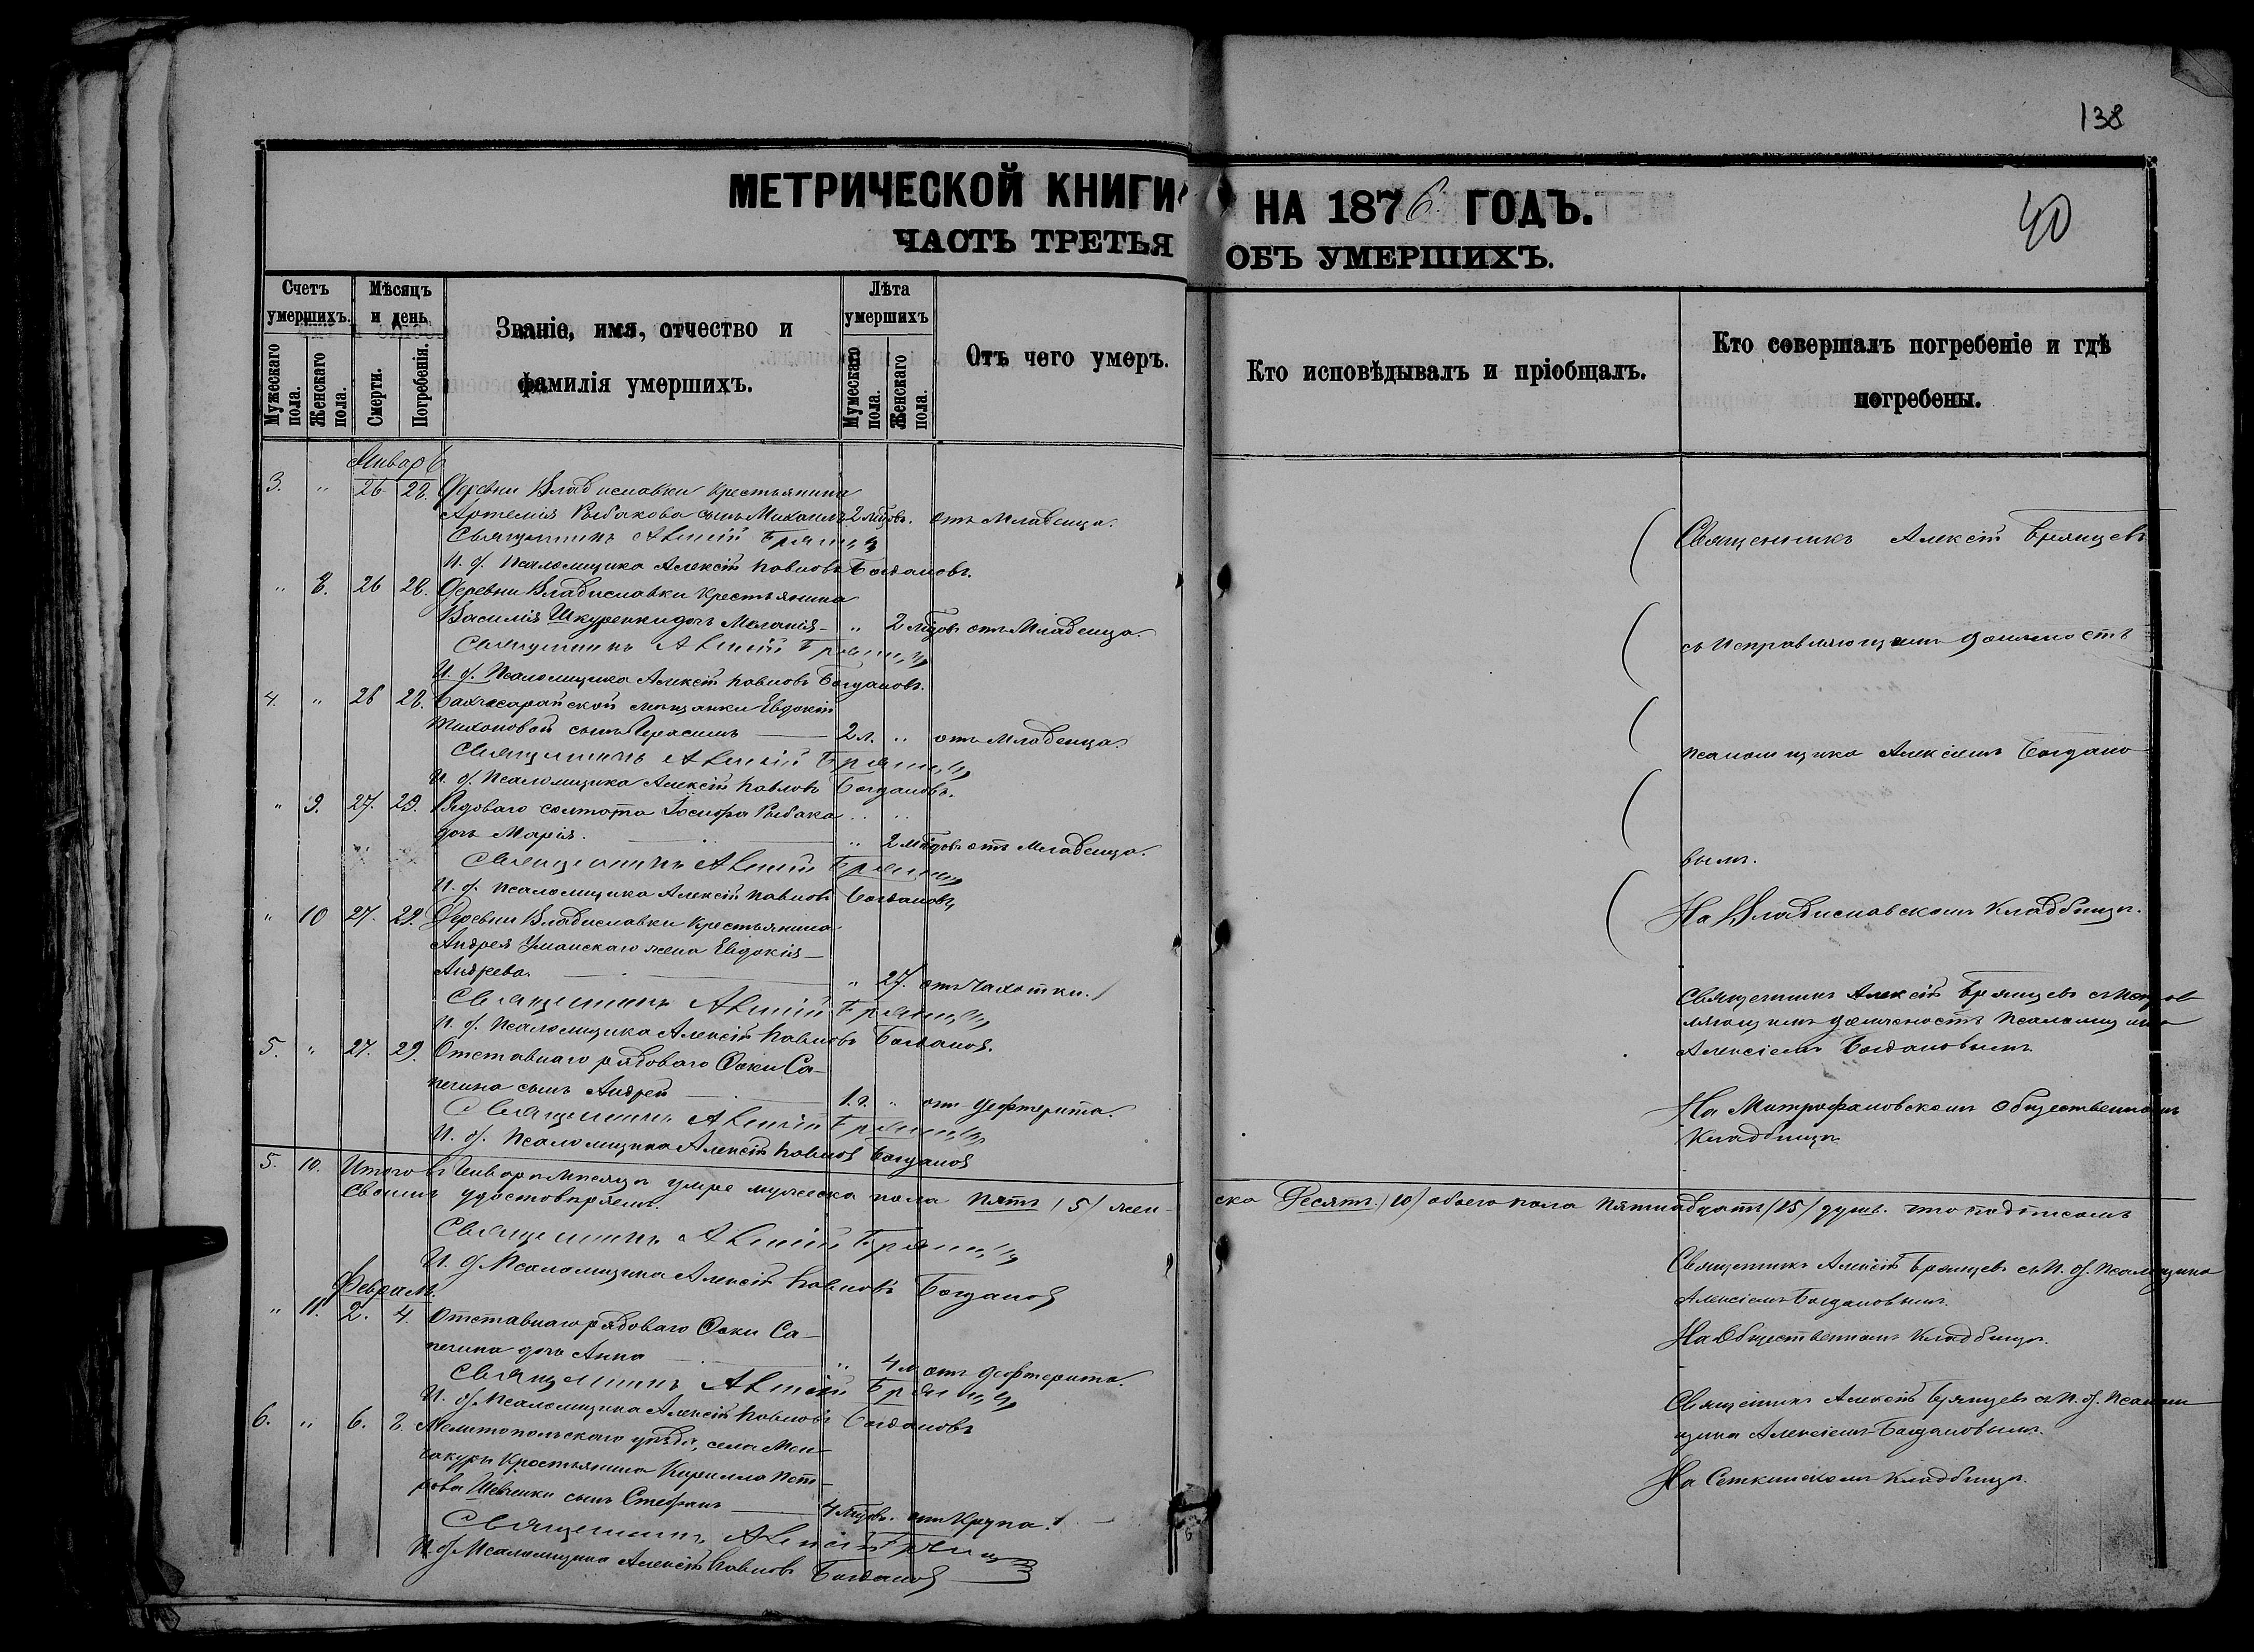 138
МЕТРИЧЕСКОЙ КНИГИ НА 1876 ГОДЪ.
40
ЧАСТЬ ТРЕТЬЯ ОБЪ УМЕРШИХЪ.
Счетъ умершихъ.
Мѣсяцъ и день
Званіе, имя, отчество и фамилія умершихъ.
Лѣта умершихъ
Отъ чего умеръ.
Кто исповѣдывалъ и пріобщалъ.
Кто совершалъ погребеніе и гдѣ погребены.
Мужескаго пола.
Женскаго пола.
Смерти.
Погребенія.
Мужескаго пола.
Женскаго пола.
Январь
3. " 26 28. Деревни Владиславки крестьянина
Артемія Рыбакова сынъ Михаилъ 2 мѣсяцовъ. отъ Младенца.
Священникъ Алексій Брянцевъ
И. д. Псаломщика Алексѣй Павловъ Богдановъ.
" 8. 26 28. Деревни Владиславки Крестьянина
Василія Шкуренки дочь Меланія " 2 мѣсяцовъ отъ Младенца.
Священникъ Алексій Брянцевъ
И. д. Псаломщика Алексѣй Павловъ Богдановъ.
4. " 26 28. Бахчисарайской мѣщанки Евдокіи
Тихоновой сынъ Герасимъ 2 л. " отъ Младенца.
Священникъ Алексій Брянцевъ
И. д. Псаломщика Алексѣй Павловъ Богдановъ.
" 9. 27. 29. Рядоваго солтата Іосифа Рыбака
дочь Марія. " 2 мѣсяцовъ отъ Младенца.
Священникъ Алексій Брянцевъ
И. д. Псаломщика Алексѣй Павловъ Богдановъ
" 10 27. 29. Деревни Владиславки Крестьянина
Андрея Уманскаго жена Евдокія
Андреева " 27. отъ Чахотки.
Священникъ Алексій Брянцевъ
И. д. Псаломщика Алексѣй Павловъ Богданов.
5. " 27. 29. Отставнаго рядоваго Фоки Са-
пегина сынъ Андрей 1. г. " отъ дефтерита.
Священникъ Алексій Брянцевъ
И. д. Псаломщика Алексѣй Павлов Богданов
Священникъ Алексій Брянцевъ
съ Исправляющимъ должность
псаломщика Алексіемъ Богдано
вымъ.
На Владиславскомъ Кладбищѣ.
Священникъ Алексѣй Брянцевъ съ Исправ
ляющимъ должность Псаломщика
Алексіемъ Богдановымъ
На Митрофановскомъ Общественномъ
Кладбищѣ
5. 10. Итого въ Январѣ мѣсяцѣ умре мужеска пола пять (5) жен-
ска Десять (10) обоего пола пятнадцать (15) душъ. что подписомъ
Своимъ удостовѣряемъ.
Священникъ Алексій Брянцевъ
И. д. Псаломщика Алексѣй Павловъ Богданов
Февраль.
" 11. 2. 4. Отставнаго рядоваго Фоки Са-
пегина дочь Анна " 4 м. отъ дефтерита.
Священникъ Алексій Брянцевъ
И. д. Псаломщика Алексѣй Павловъ Богдановъ
6. " 6. 8. Мелитопольскаго уѣзда, села Мен-
чикуръ Крестьянина Кирилла Пет-
рова Шевченки сынъ Стефанъ 4 мѣсяцовъ. отъ Крупа.
Священникъ Алексій Брянцевъ
И. д. Псаломщика Алексѣй Павловъ Богданов
Священникъ Алексѣй Брянцевъ съ И. д. Псаломщика
Алексіемъ Богдановымъ.
На Общественномъ Кладбищѣ.
Священникъ Алексѣй Брянцевъ съ И. д. Псалом
щика Алексіемъ Богдановымъ.
На Сеткинскомъ Кладбищѣ.